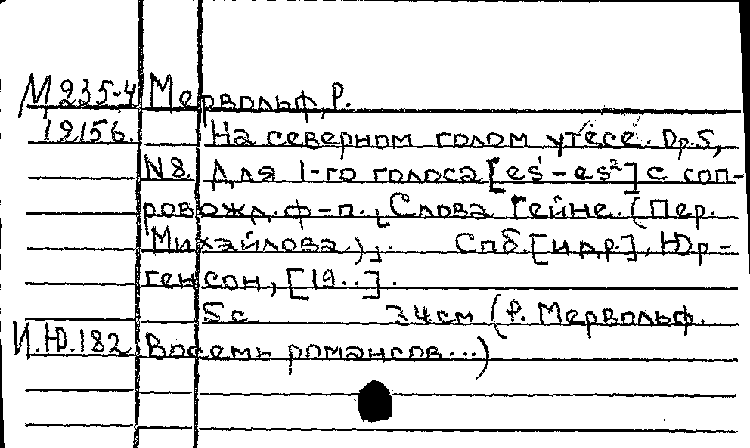 М 235-4 Мервольф, Р.
19156. На северном голом утёсе. Op.5,
N 8. Для 1-го голоса [es¹-es²] с соп-
ровожд. ф-п. [Слова Гейне. (Пер.
Михайлова)]. Спб. [и др.], Юр-
генсон, [19..].
5 с 34 см (Р. Мервольф.
И.Ю.182 Восемь романсов...)